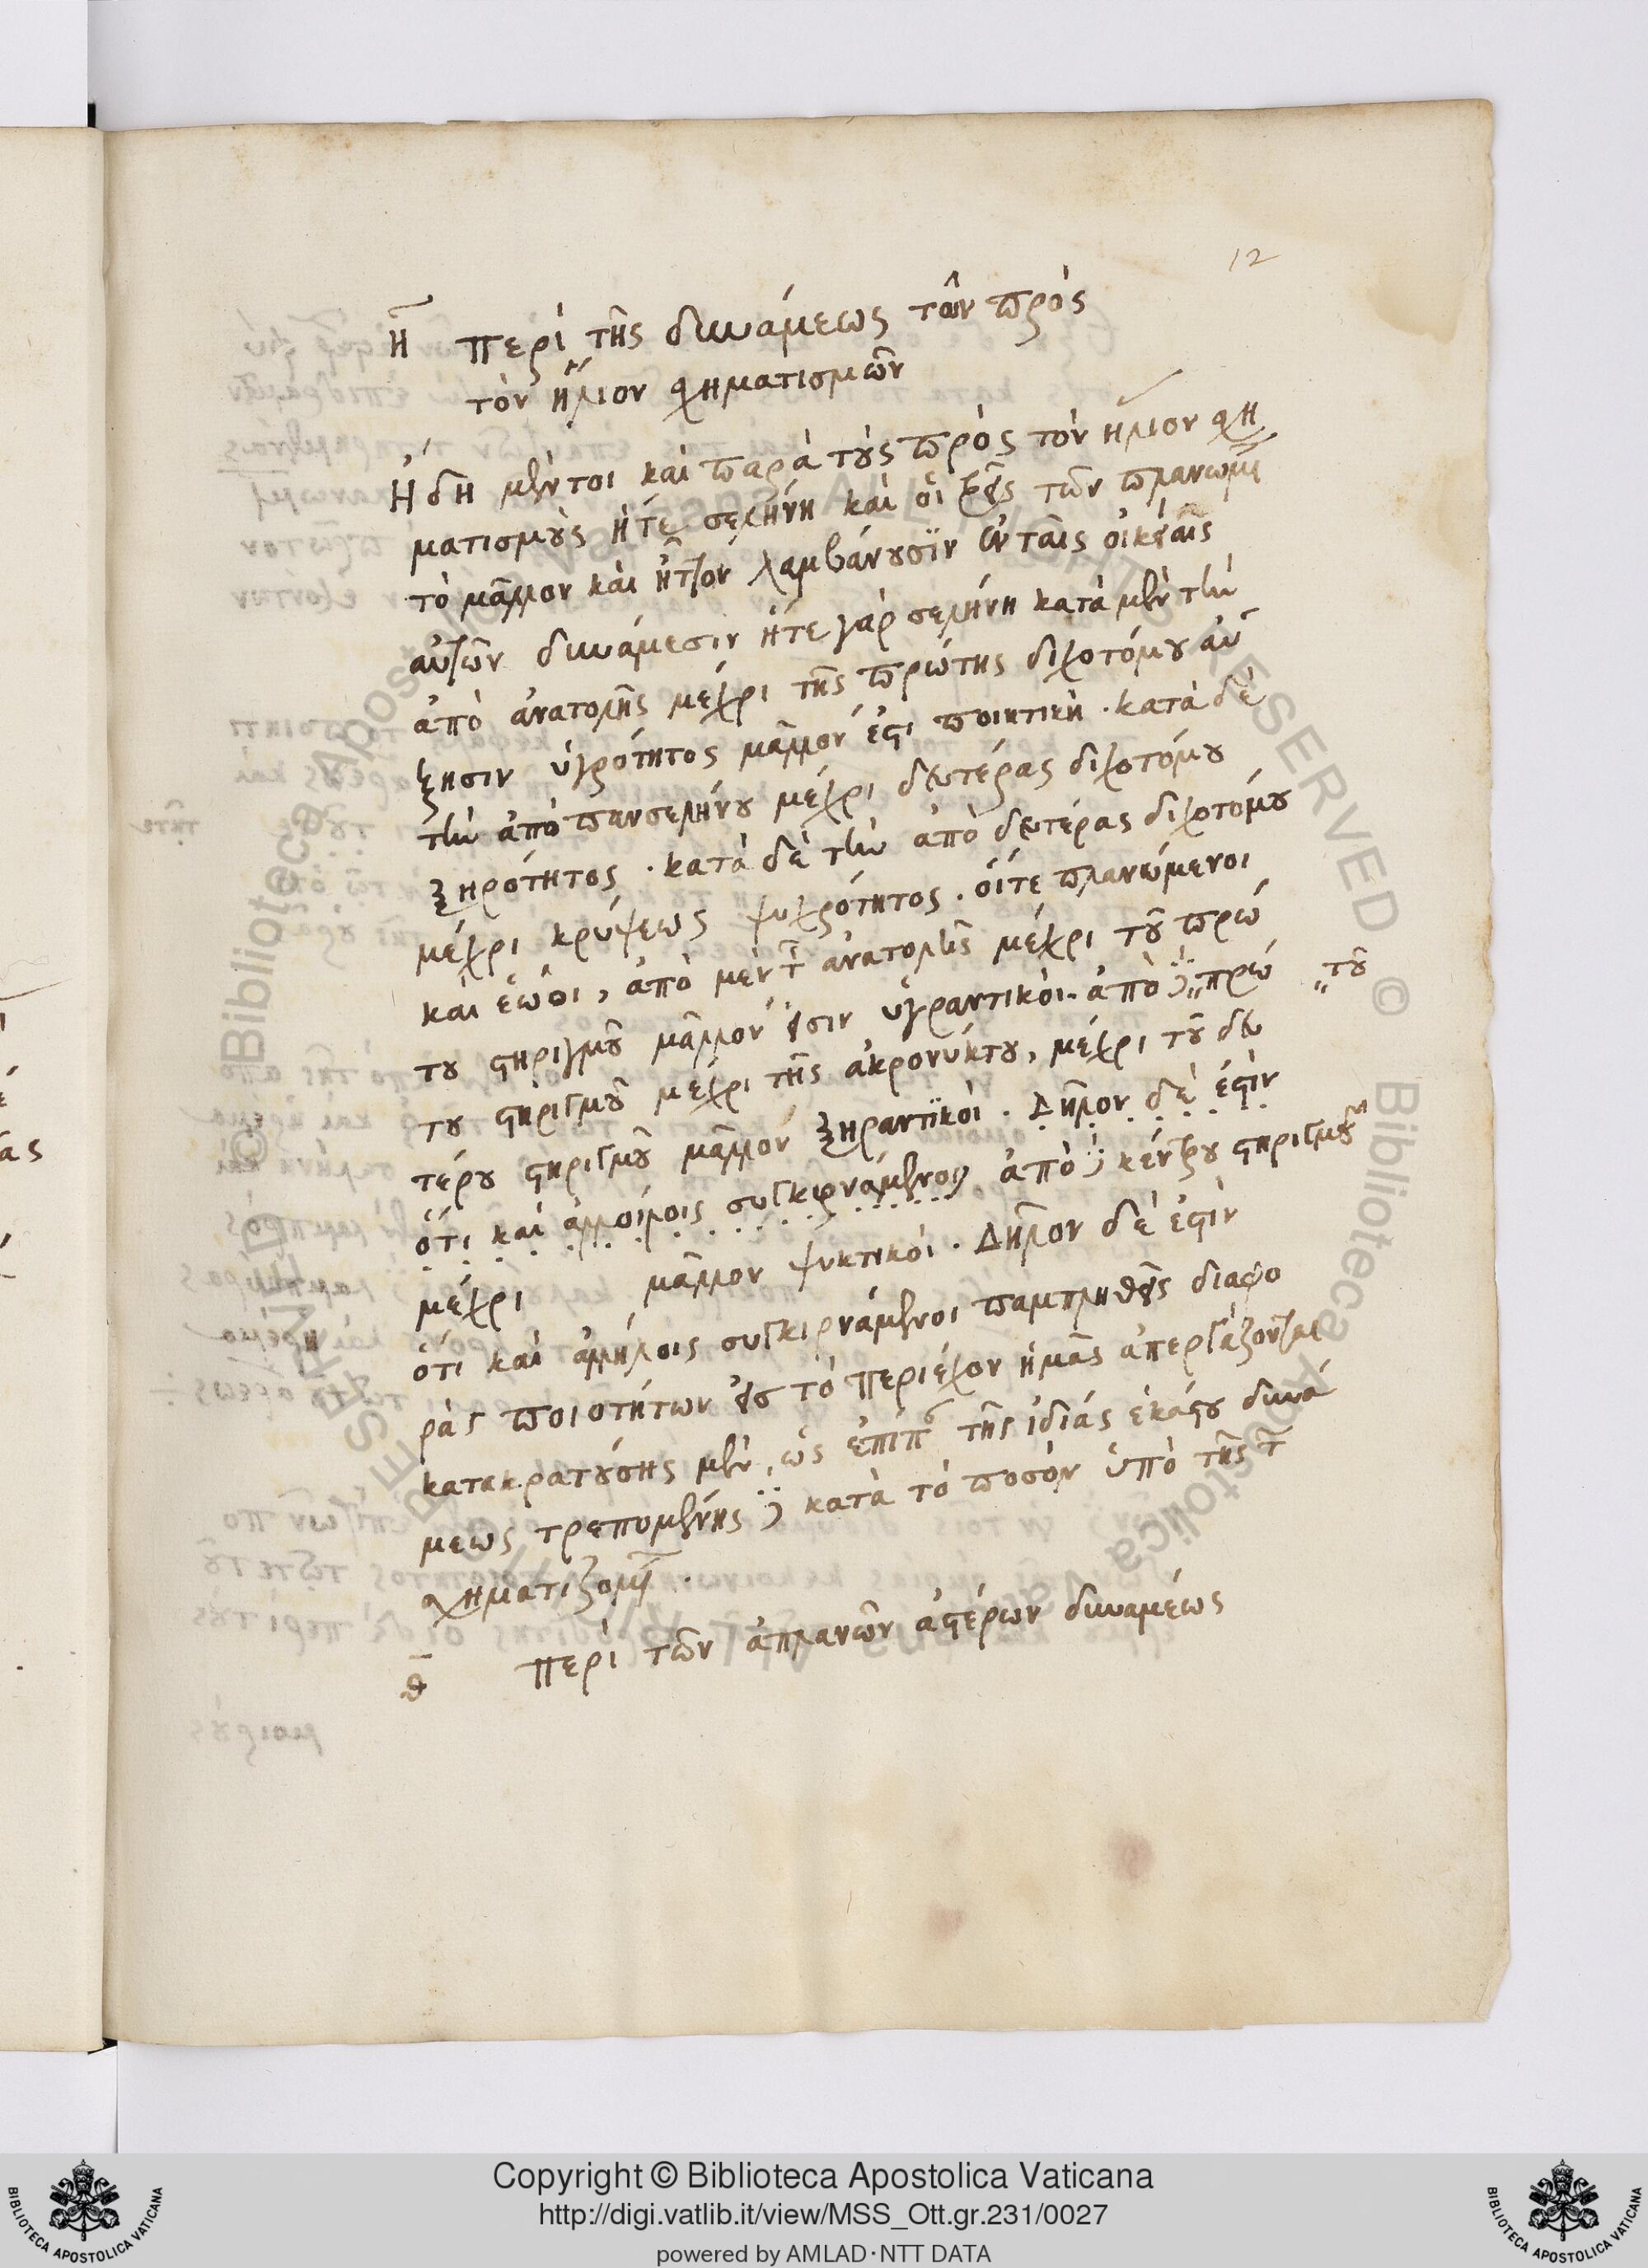 12
η̄ περὶ τῆς δυνάμεως τῶν πρὸς
τὸν ἥλιον σχηματισμῶν
Ἤδη μέντοι καὶ παρὰ τοὺς πρὸς τὸν ἥλιον σχη
ματισμοὺς ἥτε σελήνη καὶ οἱ τρεῖς τῶν πλανωμέ
τὸ μᾶλλον καὶ ἧττον λαμβάνουσϊν ἐν ταῖς οἰκείαις
αὐτῶν δυνάμεσιν ἥτε γὰρ σελήνη κατὰ μὲν τὴν
ἀπὸ ἀνατολῆς μέχρι τῆς πρώτης διχοτόμου αὔ
ξησιν ὑγρότητος μᾶλλόν ἐστι ποιητικὴ · κατὰ δὲ
τὴν ἀπὸ πανσελήνου μέχρι δευτέρας διχοτόμου
ξηρότητος · κατὰ δὲ τὴν ἀπὸ δευτέρας διχοτόμου
μέχρι κρύψεως ψυχρότητος · οἵτε πλανώμενοι
καὶ ἑῶοι, ἀπὸ μὲν τ̄ ἀνατολῆς μέχρι τοῦ πρώ
του στηριγμοῦ μᾶλλον εἰσιν ὑγραντικοὶ · ἀπὸ δὲ πρώ ,,τοῦ
του στηριγμοῦ μέχρι τῆς ἀκρονύκτου, μέχρι τοῦ δευ
τέρου στηριγμοῦ μᾶλλον ξηραντϊκοὶ · Δῆλον δὲ ἐστὶν
ὅτι καὶ ἀλλοίλοις συγκιρνάμενοι ἀπὸ δὲ κέντρου στηριγμοῦ
μέχρι μᾶλλον ψυκτικοὶ · Δῆλον δὲ ἐστὶν
ὅτι καὶ ἀλλήλοις συγκιρνάμενοι παμπληθεῖς διαφο
ρὰς ποιοτήτων εἰσ τὸ περιέχον ἡμᾶς ἀπεργάζονται
κατακρατούσης μὲν, ὡς ἐπίπ τῆς ἰδιάς ἑκάστου δυνά
μεως τρεπομένης δὲ κατὰ τὸ ποσὸν ὑπὸ τῆς τ̄
σχηματιζομέ ·
θ̄ περὶ τῶν ἀπλανῶν ἀστέρων δυναμέως
Copyright © Biblioteca Apostolica Vaticana
http://digi.vatlib.it/view/MSS_Ott.gr.231/0027
powered by AMLAD·NTT DATA
BIBLIOTECA APOSTOLICA VATICANA
BIBLIOTECA APOSTOLICA VATICANA